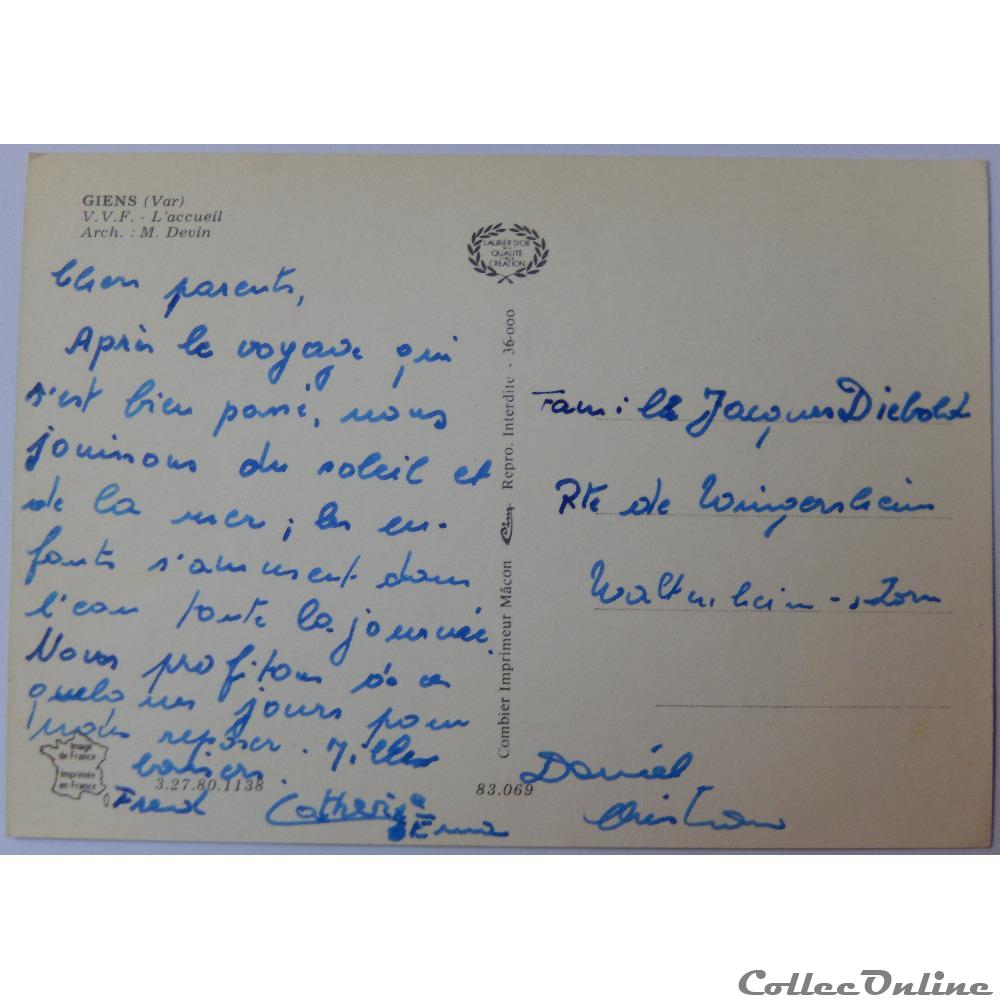 GIENS (Var)
V.V.F. - L'accueil
Arch. : M. Devin
LAURIER D'OR
DE LA
QUALITÉ
DE LA
CRÉATION
Chers parents,
Après le voyage qui
s'est bien passé, nous
jouissons du soleil et
de la mer ; les en-
fants s'amusent dans
l'eau toute la journée.
Nous profitons de ces
quelques jours pour
nous reposer. Milles
baisers.
Fred Catherine
Erna
Daniel
Christian
Image
de France
Imprimée
en France
3.27.80.1138
83.069
Combier Imprimeur Mâcon Cim Repro. Interdite - 36-000
Famille Jacques Diebold
Rte de Wingersheim
Waltenheim-s/Zorn
CollecOnline